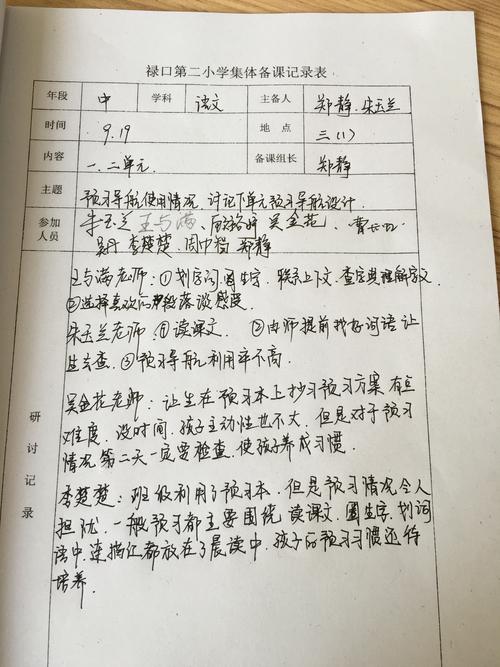 禄口第二小学集体备课记录表
年段 中 学科 语文 主备人 郑静、朱玉兰
时间 9.19 地点 三(1)
内容 一.二单元 备课组长 郑静
主题 预习导航使用情况,讨论下单元预习导航设计.
参加人员 朱玉兰 王与满、 吴金花、
吴丹 李楚楚、周中 郑静
研讨记录
王与满老师:①划字词,圈生字,联系上下文,查字典理解字义
②选择喜欢的段落谈感受
朱玉兰老师 ①读课文. ②由师提前找好词语让
生去查.③预习导航利用率不高.
吴金花老师:让生在预习本上抄习预习方案有点
难度.没时间.孩子主动性也不大.但是对于预习
情况第二天一定要检查,使孩子养成习惯.
李楚楚:班级利用了预习本.但是预习情况令人
担忧.一般预习都主要围绕读课文.圈生字.划词
语中.连描红都放在了晨读中.孩子的预习习惯还待
培养.